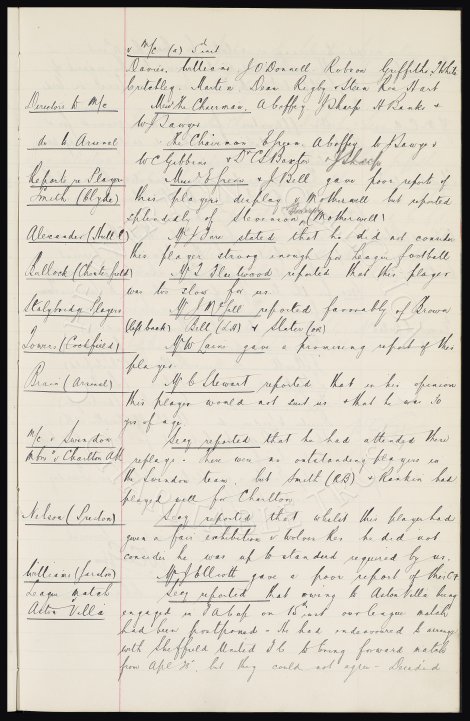 v M/c (a) 3rd inst
Davies, Williams J O'Donnell Robson Griffiths T White
Critchley. Martin Dean Rigby & Stein Res Hart
Directors to M/c Messrs the Chairman, A Coffey J Sharp H Banks &
W J Sawyer
do to Arsenal The Chairman E Green A Coffey W J Sawyer
W C Gibbins & Dr C S Baxter & J Sharp
Reports re Players Messrs E Green & J Bell gave poor reports of
Smith (Clyde) this players display v Motherwell but reported
splendidly of Stevenson (Motherwell)
Alexander (Hull C) Mr J Fare stated that he did not consider
this player strong enough for League football
Bullock (Chesterfield) Mr T Fleetwood reported that this player
was too slow for us.
Stalybridge Players Mr J McGill reported favorably of Brown
(left back) Bell (L.H) & Slater (OR)
Towers (Cockfield) Mr W Cain gave a promising report of this
player.
Brain (Arsenal) Mr C Stewart reported that in his opinion
this player would not suit us & that he was 30
yrs of age.
M/c v Swindon Secy reported that he had attended these
Mbro v Charlton Ath replays - There were no outstanding players in
the Swindon team, but Smith (RB) & Rankin had
played well for Charlton
Nelson (Preston) Secy reported that whilst this player had
given a fair exhibition v Wolves Res he did not
consider he was up to standard required by us.
Williams (Swndon) Mr J Elliott gave a poor report of this CF
League match Secy reported that owing to Aston Villa being
Aston Villa engaged in F A Cup on 15th inst our league match
had been postponed - He had endeavoured to arrange
with Sheffield United F C to bring forward match
from Apl 25th, but they could not agree - Decided